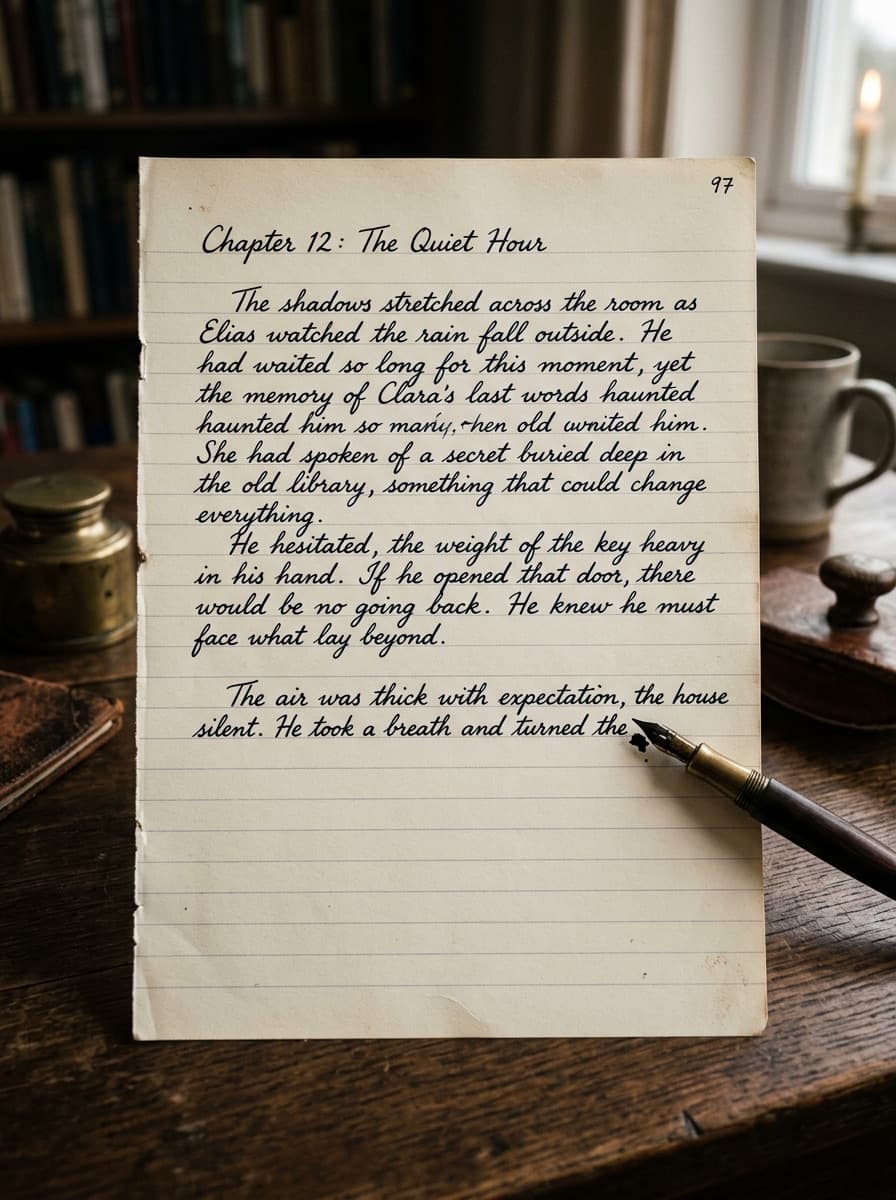 97
Chapter 12: The Quiet Hour
The shadows stretched across the room as
Elias watched the rain fall outside. He
had waited so long for this moment, yet
the memory of Clara's last words haunted
haunted him so many, old him.
She had spoken of a secret buried deep in
the old library, something that could change
everything.
He hesitated, the weight of the key heavy
in his hand. If he opened that door, there
would be no going back. He knew he must
face what lay beyond.
The air was thick with expectation, the house
silent. He took a breath and turned the